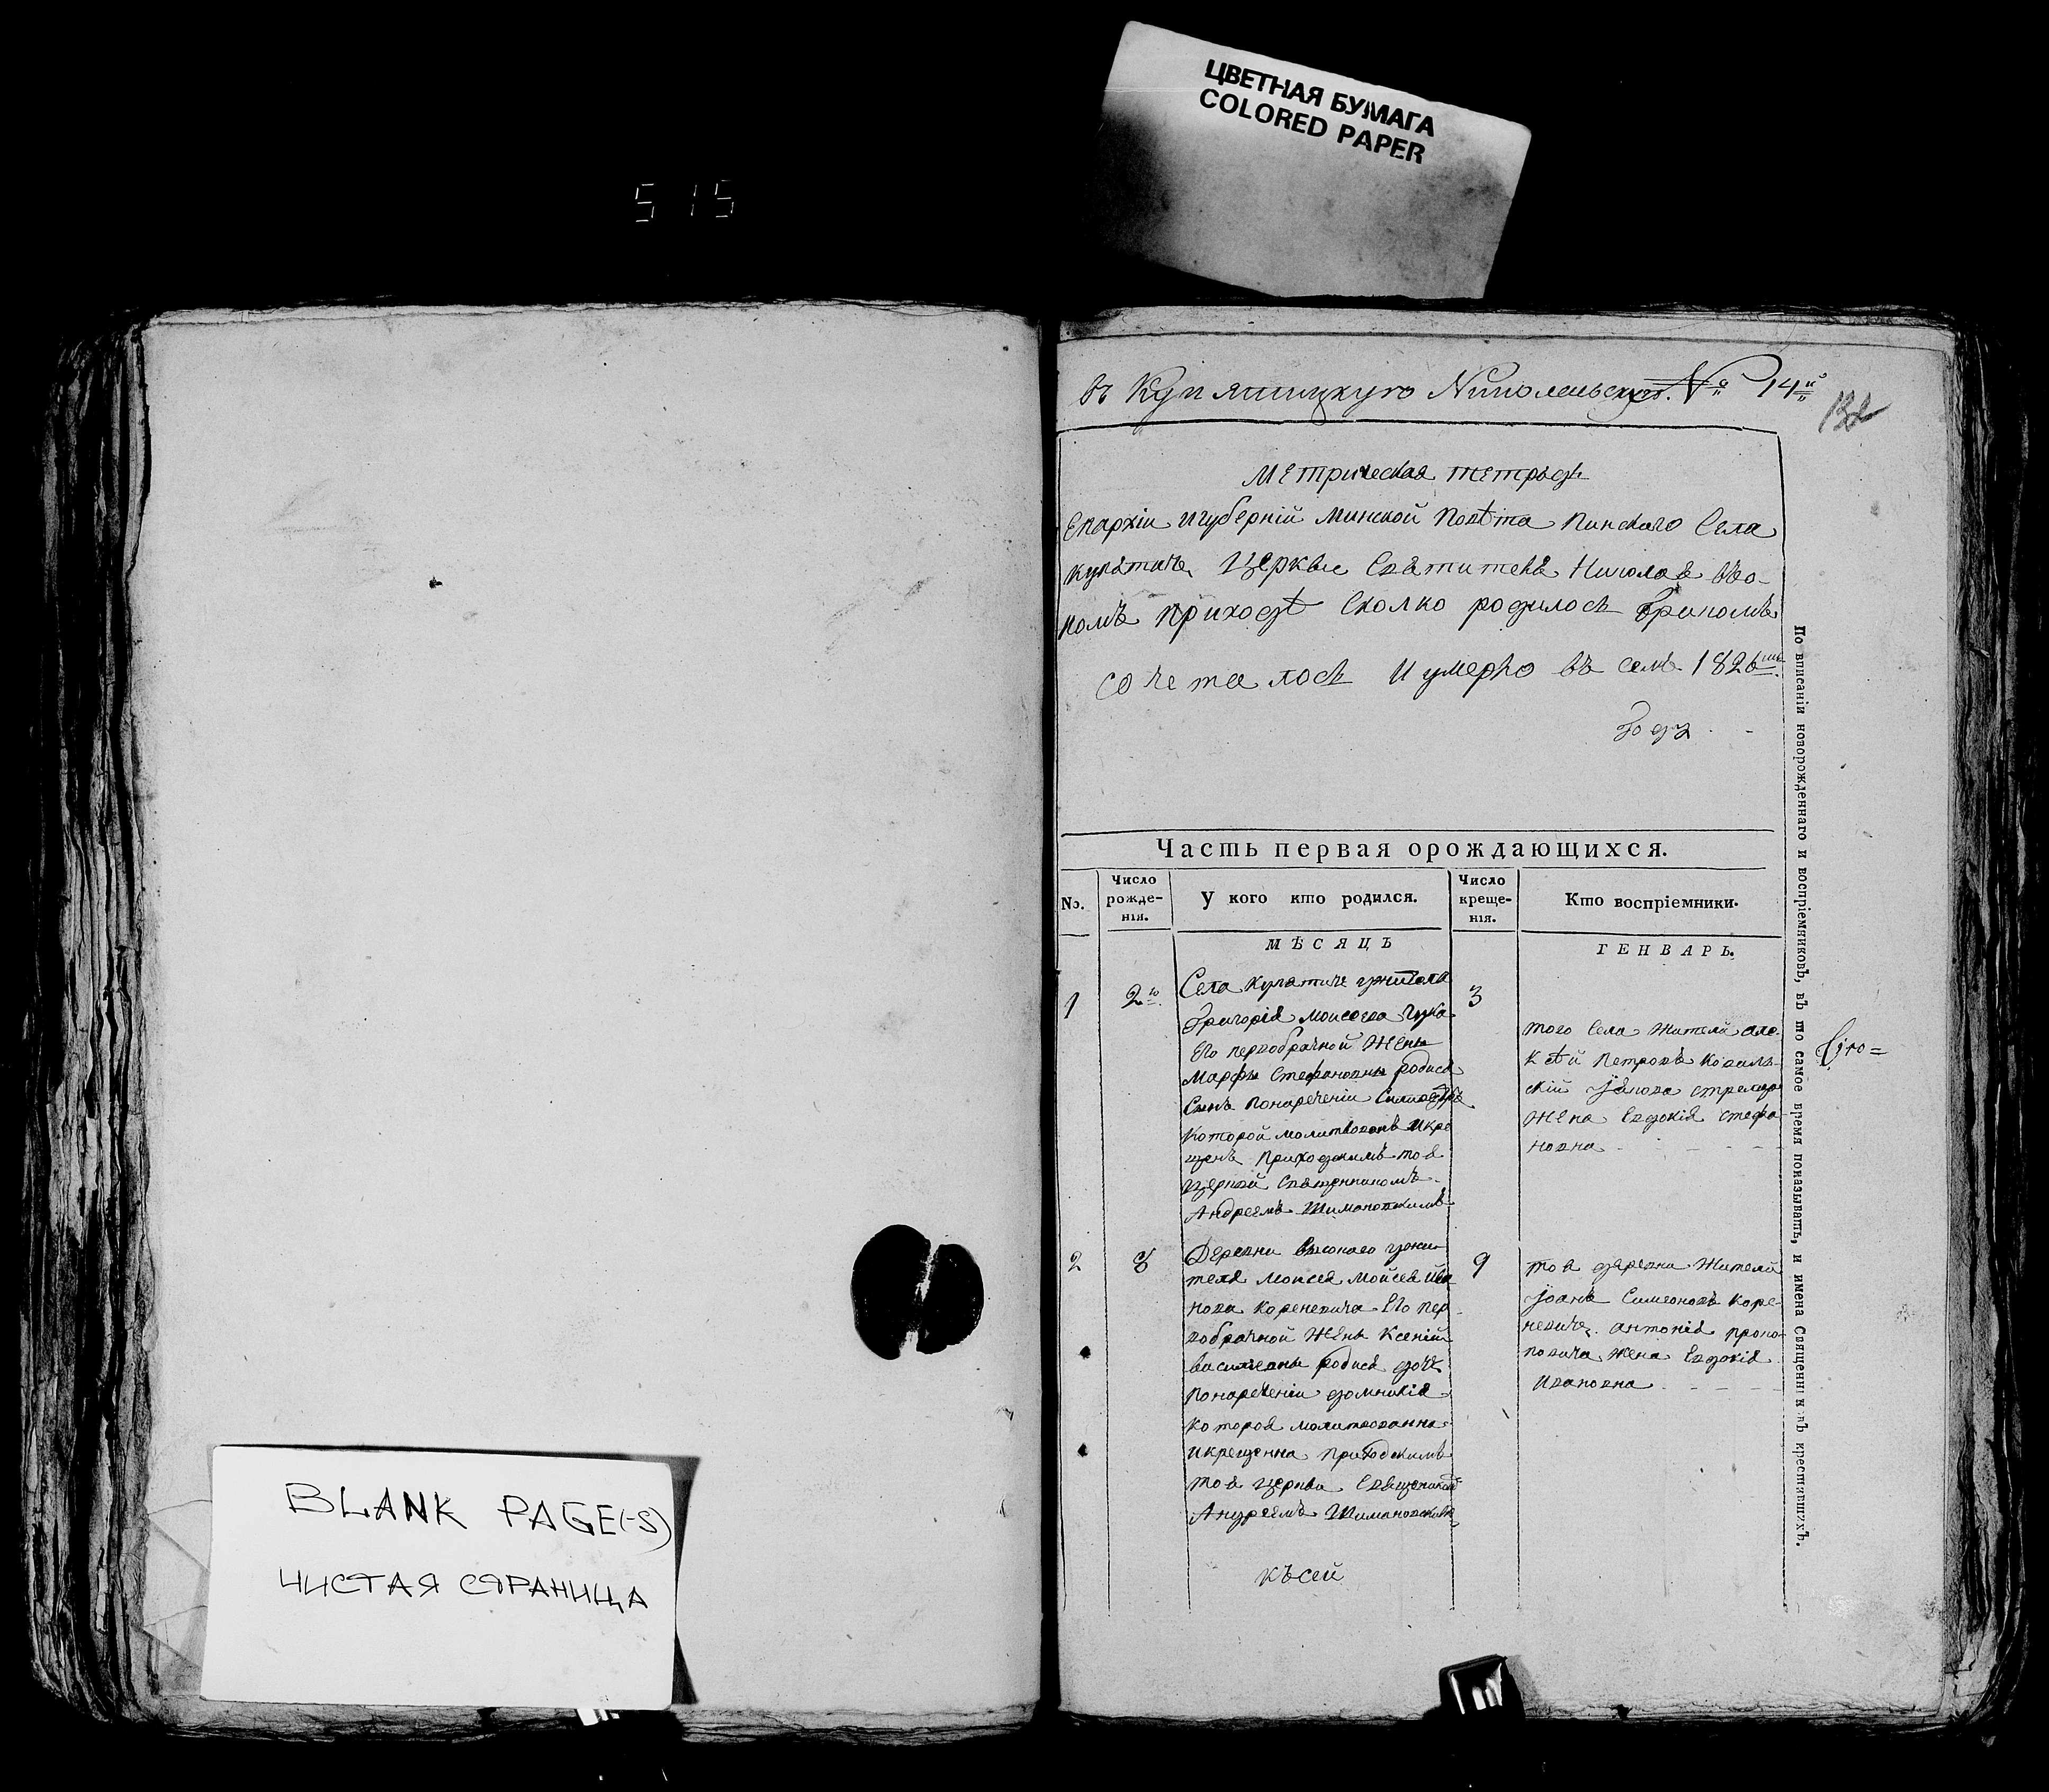 ЦВЕТНАЯ БУМАГА
COLORED PAPER
515
BLANK PAGE(-S)
ЧИСТАЯ СТРАНИЦА
въ № 14й
132
Метрическая тетрадь
Епархіи и губерній Минской Повѣта Пинского Села
Купятичъ Церкви Святителя Николая въо-
номъ приходѣ сколко родилось бракомъ
сочеталось и умерло въ семъ 1826мъ
Годѣ
Часть первая о рождающихся.
No.
Число рожде- нія.
У кого кто родился.
Число креще- нія.
Кто воспріемники.
МѢСЯЦЪ
ГЕНВАРЬ.
1
2го
Села Купятичъ ужителя
Григорія Моисеева
Его первобрачной Жены
Марфы Стефановны родися
Сынъ Понареченіи
Которой молитвованъ Икре
щенъ Приходскимъ тоя
церкви Священникомъ
Андреемъ Шимановскимъ
3
того Села Жители але-
ксѣй Петровъ
Жена Евдокія Стефа-
новна
2
8
Деревни Высокого ужи-
теля Моисея Моисея Ива
нова Кореневича Его пер-
вобрачной Жены Ксеніи
Василевны родися дочь
Понареченіи домникія
Которая молитвованна
икрещенна Приходскимъ
тоя церкви Священикомъ
Андреемъ Шимановскимъ
9
тоя деревни Жители
Іоанъ Симеоновъ Коре-
невичъ антонія проко-
повича Жена Евдокія
Ивановна
къ сей
По вписаніи новорожденнаго и воспріемниковъ, въ то самое время показывать, и имена Священниковъ крестившихъ.